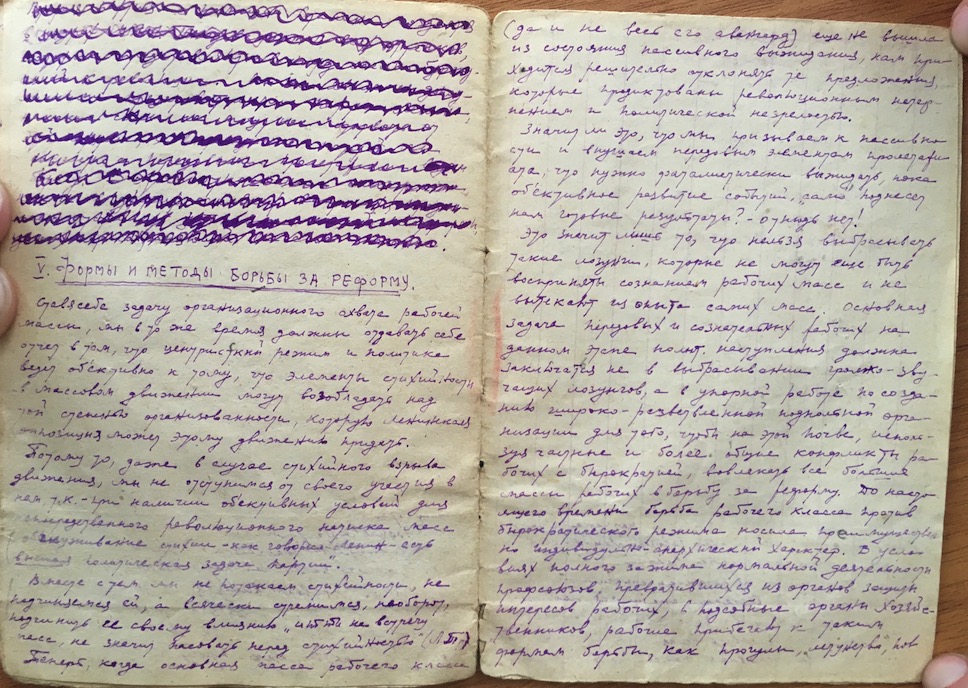 V. Формы и методы борьбы за реформу.
Ставя себе задачу организационного охвата рабочей
массы, мы в то же время должны отдавать себе
отчет в том, что центристский режим и политика
ведут объективно к тому, что элементы стихийности
в массовом движении могут возобладать над
той степенью организованности, которую ленинская
оппозиция может этому движению придать.
Потому то, даже в случае стихийного взрыва
движения, мы не отступимся от своего участия в
нем, т.к. при наличии объективных условий для
непосредственного революционного натиска масс
обслуживание стихии - как говорил Ленин - есть
высшая политическая задача партии.
Вместе с тем, мы не потакаем стихийности, не
подчиняемся ей, а всячески стремимся, наоборот,
подчинить ее своему влиянию „итти на встречу
масс, не значит пасовать перед стихийностью" (Л.Т.)
Теперь, когда основная масса рабочего класса
(да и не весь его авангард) еще не вышла
из состояния пассивного выжидания, нам при-
ходится решительно отклонять те предложения,
которые продиктованы революционным нетер-
пением и политической незрелостью.
Значит ли это, что мы призываем к пассивно
сти и внушаем передовым элементам пролетари
ата, что нужно фаталистически выжидать, пока
объективное развитие событий, само поднесет
нам готовые результаты? - Отнюдь нет!
Это значит лишь то, что нельзя выбрасывать
такие лозунги, которые не могут еще быть
восприняты сознанием рабочих масс и не
вытекают из опыта самих масс. Основная
задача передовых и сознательных рабочих на
данном этапе полит. наступления должна
заключаться не в выбрасывании громко-зву-
чащих лозунгов, а в упорной работе по созда-
нию широко-разветвленной подпольной орга-
низации для того, чтобы на этой почве, исполь-
зуя частные и более общие конфликты ра-
бочих с бюрократией, вовлекать все большие
массы рабочих в борьбу за реформу. До насто-
ящего времени борьба рабочего класса против
бюрократического режима носила преимуществен
но индивидуально-анархический характер. В усло-
виях полного зажима нормальной деятельности
профсоюзов, превратившихся из органов защиты
интересов рабочих, в подсобные органы хозяйс-
твенников, рабочие прибегают к таким
формам борьбы, как прогулы, летунство, пов